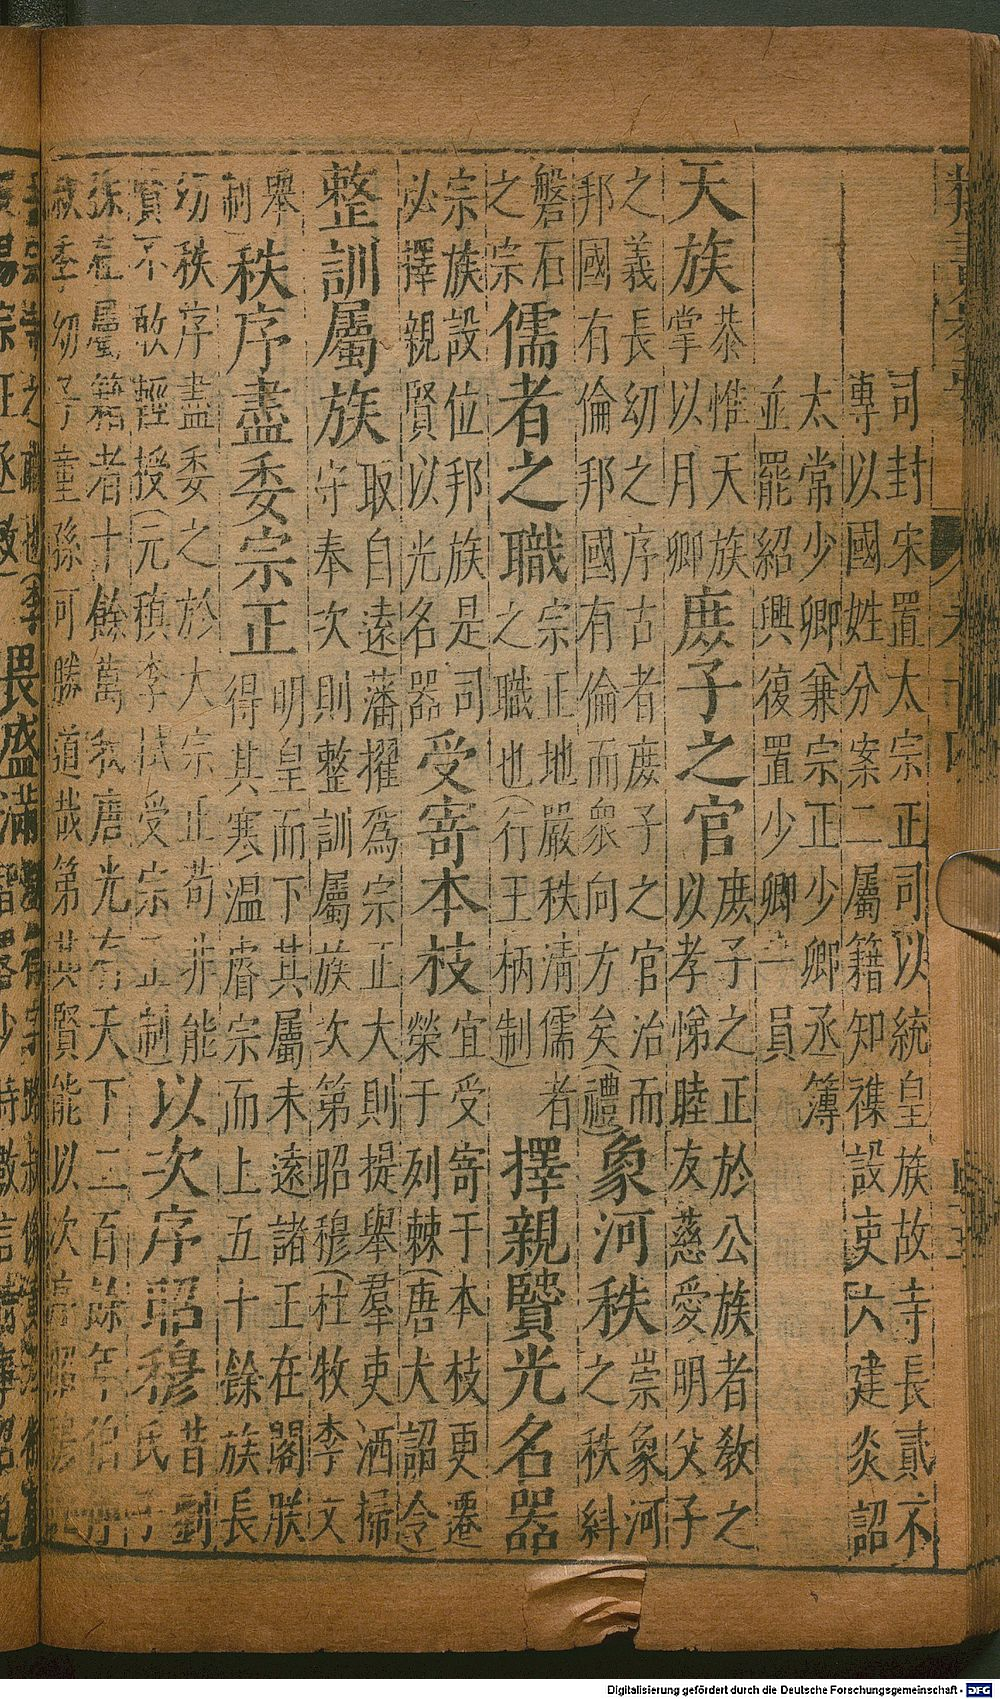 司封宋置太宗正司以統皇族故寺長貳不
專以國姓分案二屬籍知襍設吏六建炎詔
太常少卿兼宗正少卿丞簿
並罷紹興復置少卿一員
天族
恭惟天族
掌以月卿
庶子之官
庶子之正於公族者教之
以孝悌睦友慈愛明父子
之義長幼之序古者庶子之官治而
邦國有倫邦國有倫而衆向方矣(禮)
象河秩
崇象河
之秩糾
磐石
之宗
儒者之職
宗正地嚴秩清儒者
之職也(行王柄制)
擇親賢光名器
宗族設位邦族是司
必擇親賢以光名器
受寄本枝
宜受寄于本枝更遷
榮于列棘(唐大詔令)
整訓屬族
取自遠藩擢爲宗正大則提舉羣吏洒掃
守奉次則整訓屬族次第昭穆(杜牧李文
舉
制)
秩序盡委宗正
明皇而下其屬未遠諸王在閣朕
得其寒溫睿宗而上五十餘族長
幼秩序盡委之於大宗正苟非能
賢不敢輕授(元稹李 受宗正制)
以次序昭穆
昔劉
氏子
孫在屬籍者十餘萬我唐光有天下二百餘年伯
叔季幼子童孫可勝道哉第其賢能以次序昭穆
Digitalisierung gefördert durch die Deutsche Forschungsgemeinschaft - DFG